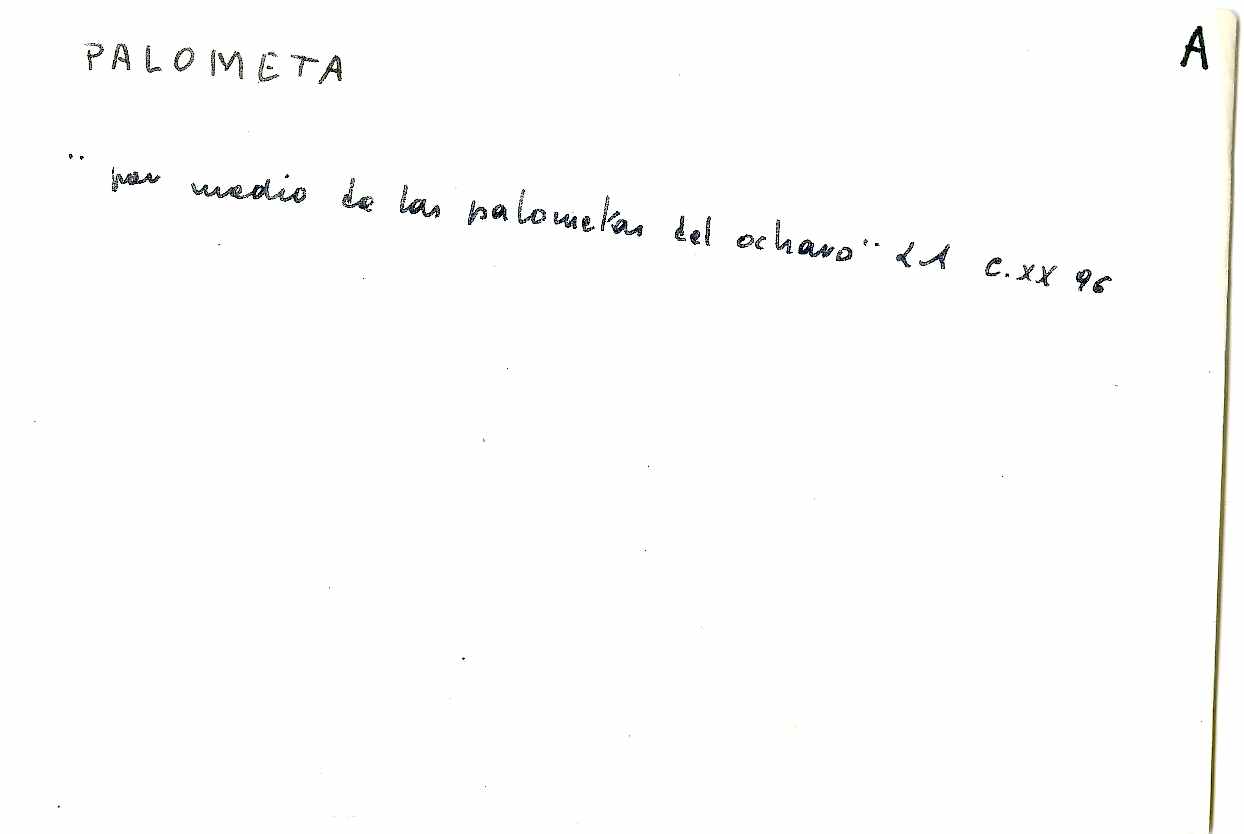 A
PALOMETA
"por medio de las palometas del ochavo" LA c.XX 96